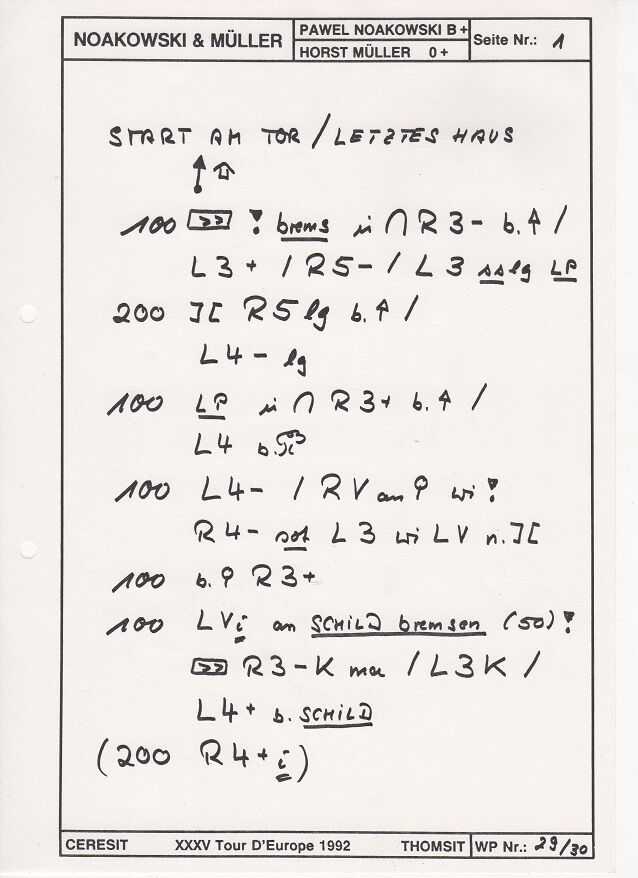 NOAKOWSKI & MÜLLER
PAWEL NOAKOWSKI B+
HORST MÜLLER 0+
Seite Nr.: 1
START AM TOR / LETZTES HAUS
100 >> ! brems in ∩ R3- b. ↑ /
L3+ / R5- / L3 sslg LP
200 ][ R5 lg b. ↑ /
L4- lg
100 LP in ∩ R3+ b. ↑ /
L4 b.
100 L4- / RV an wi !
R4- sot L3 wi LV n. ][
100 b. R3+
100 LVi an SCHILD bremsen (50) !
>> R3-K ma / L3K /
L4+ b. SCHILD
(200 R4+ i)
CERESIT XXXV Tour D'Europe 1992 THOMSIT WP Nr.: 29/30